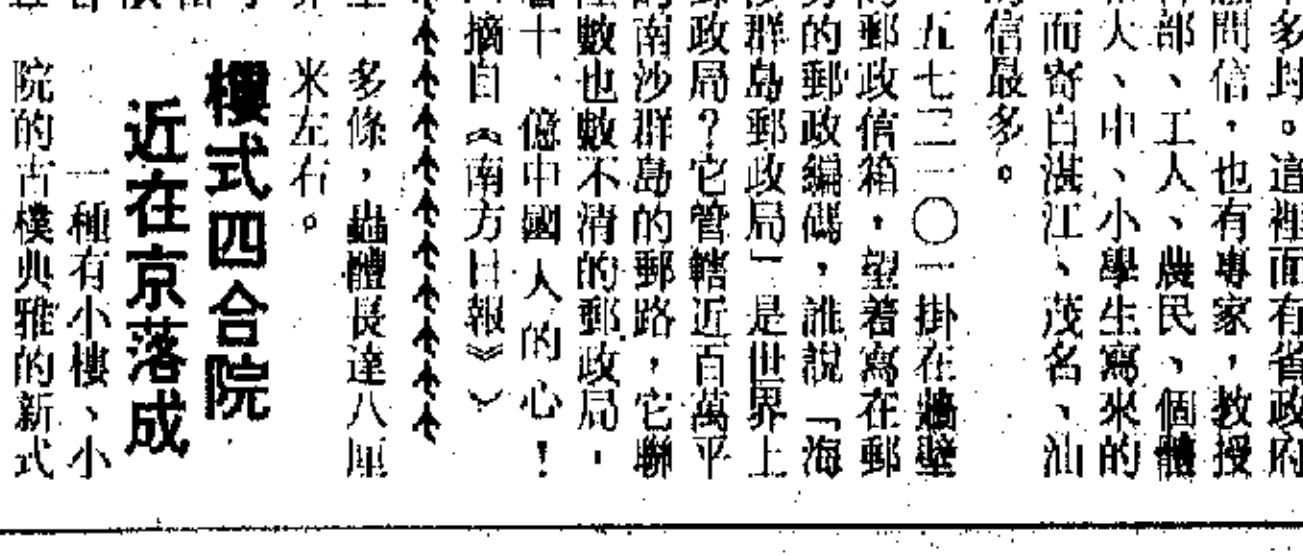 多封。這裡面有省政府
問信，也有專家，教授
部、工人、農民、個體
大、中、小學生寫來的
而寄自湛江、茂名、汕
信最多。
五七三一〇一掛在牆壁
郵政信箱，望着寫在郵
的郵政編碼，誰說「海
群島郵政局」是世界上
政局？它管轄近百萬平
南沙群島的郵路，它聯
數也數不清的郵政局，
十一億中國人的心！
摘自《南方日報》）
多條，蟲體長達八厘
米左右。
樓式四合院
近在京落成
一種有小樓、小
院的古樸典雅的新式